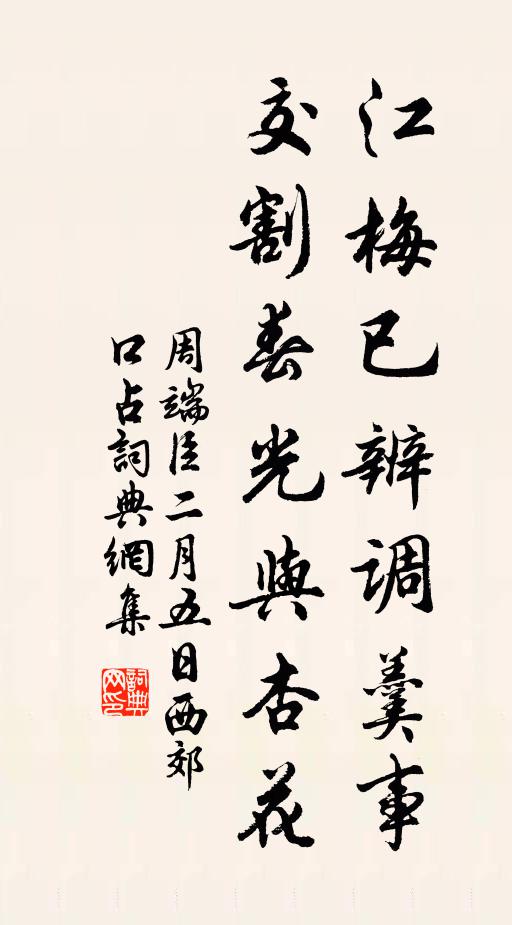 江梅已辨调羹事
交割春光與杏花
周端臣二月五日西郊
口占詞典網集
詞典網印